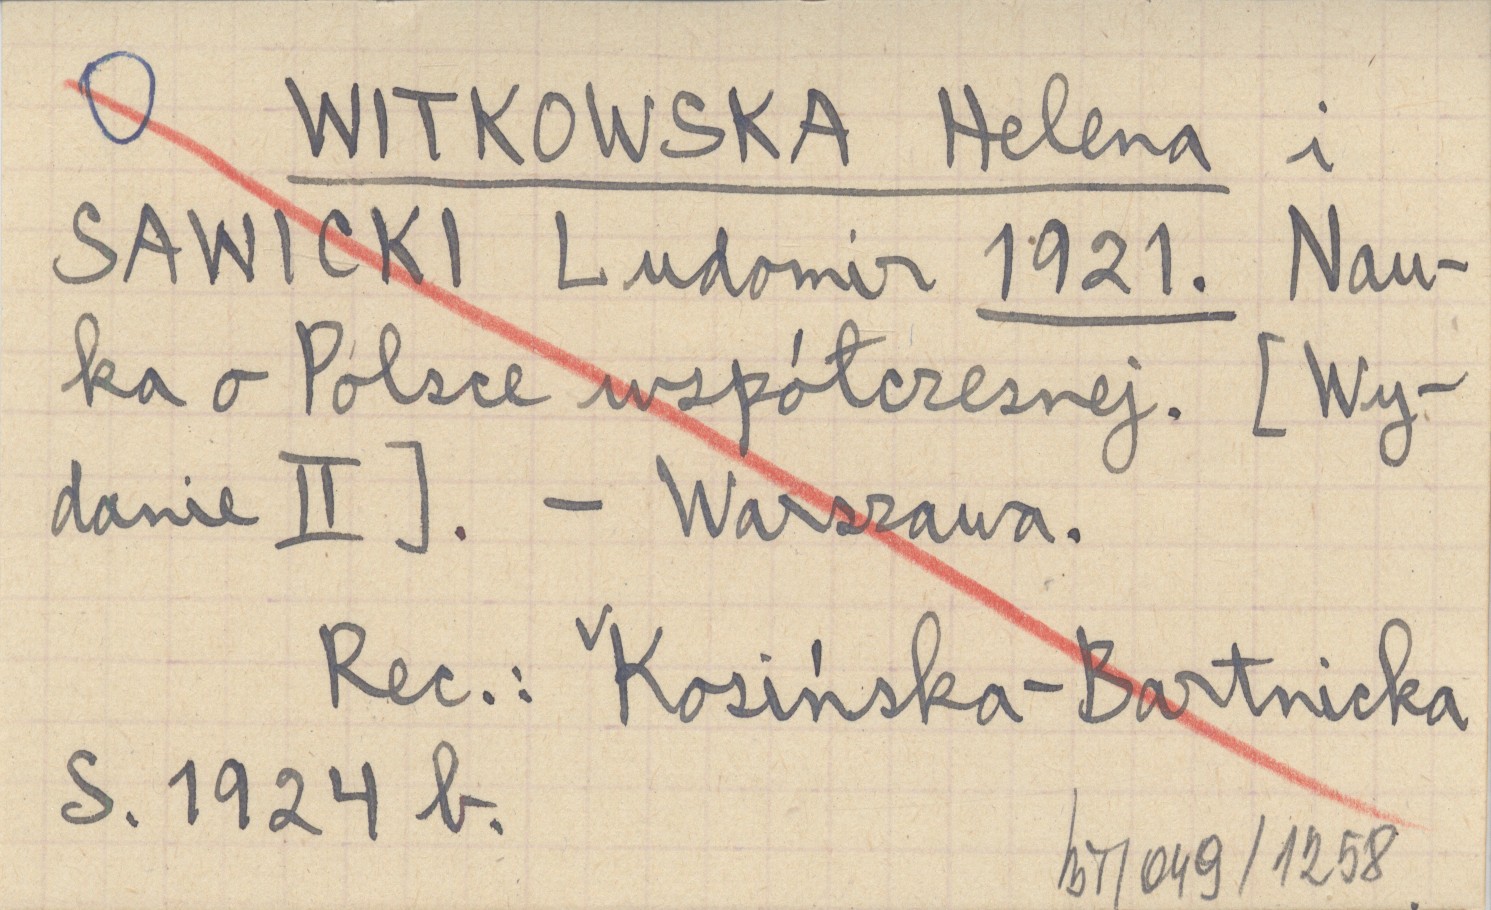 WITKOWSKA Helena i
SAWICKI Ludomir 1921. Nau-
ka o Polsce współczesnej. [Wy-
danie II]. - Warszawa.
Rec.: Kosińska-Bartnicka
S. 1924 b.
/049/1258